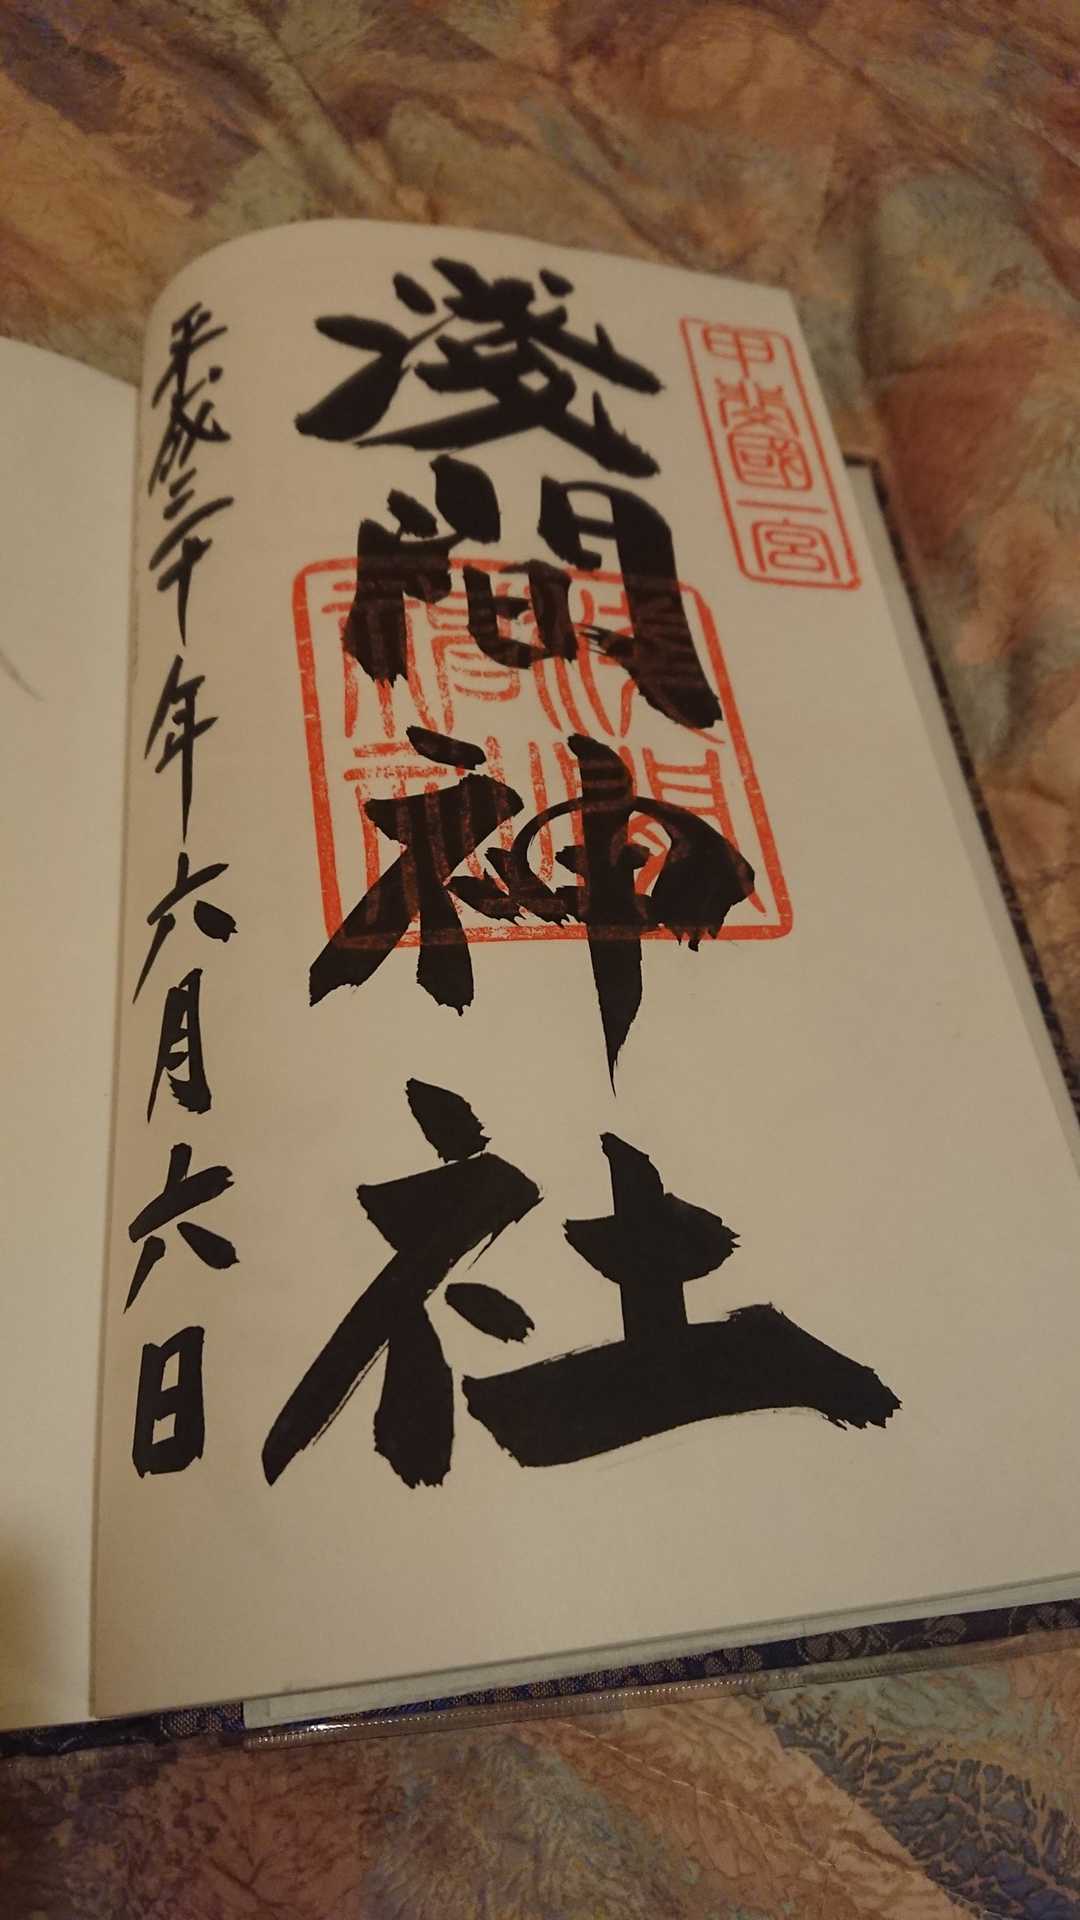 甲斐國一宮
淺間神社
平成三十年六月六日